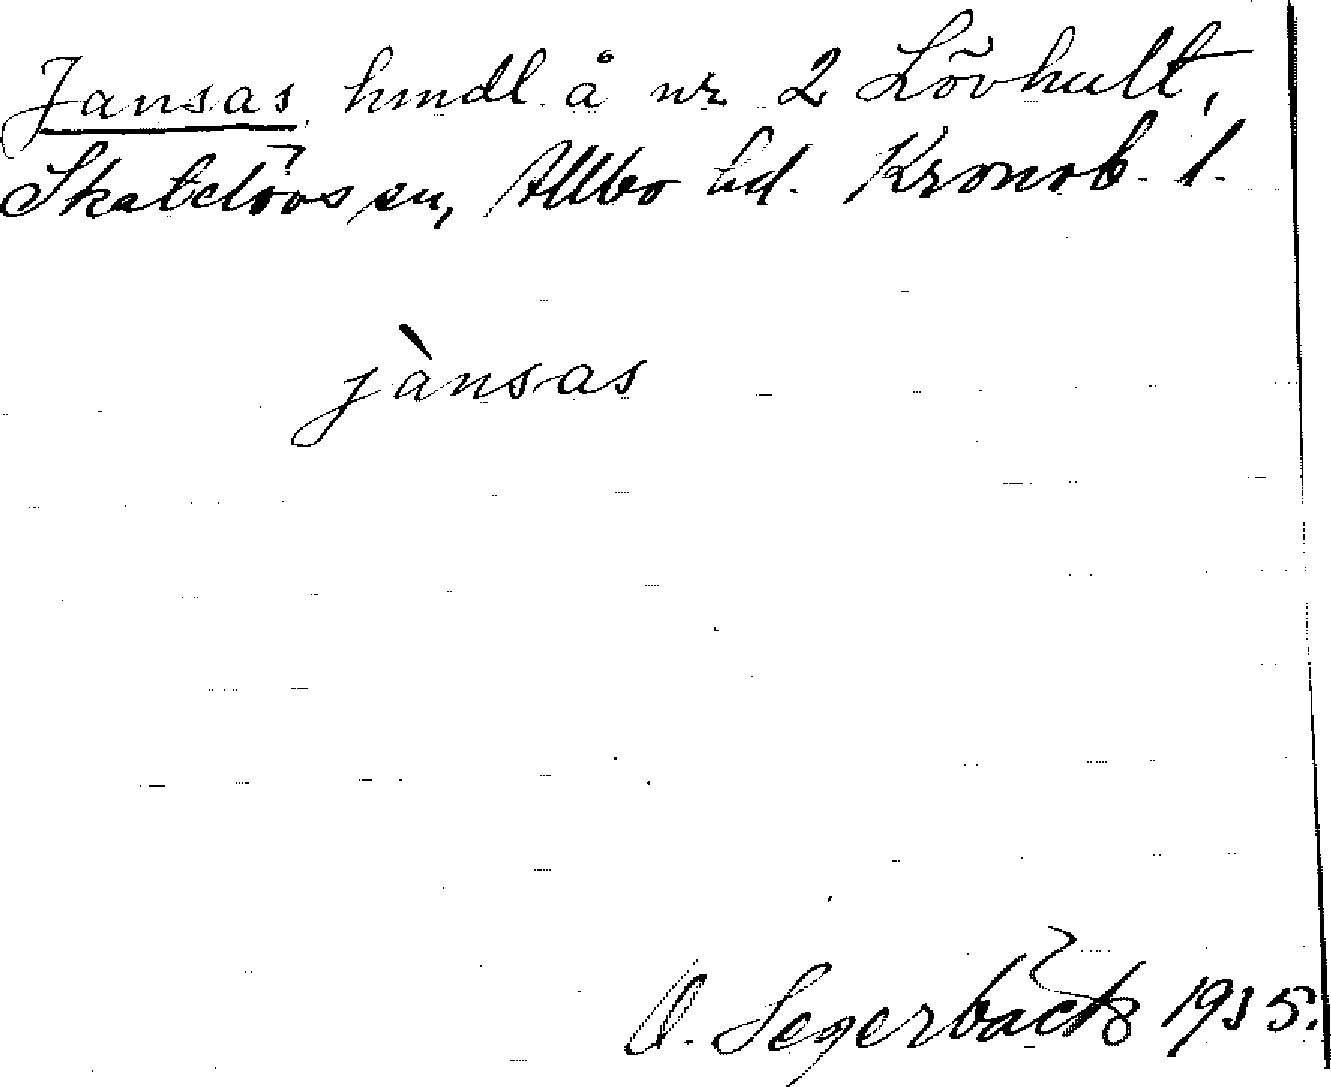 Jansas, hmdl. å nr 2 Lövhult,
Skatelövs sn, Allbo hd. Kronob. l.
jànsas
O. Segerbäck 1935.